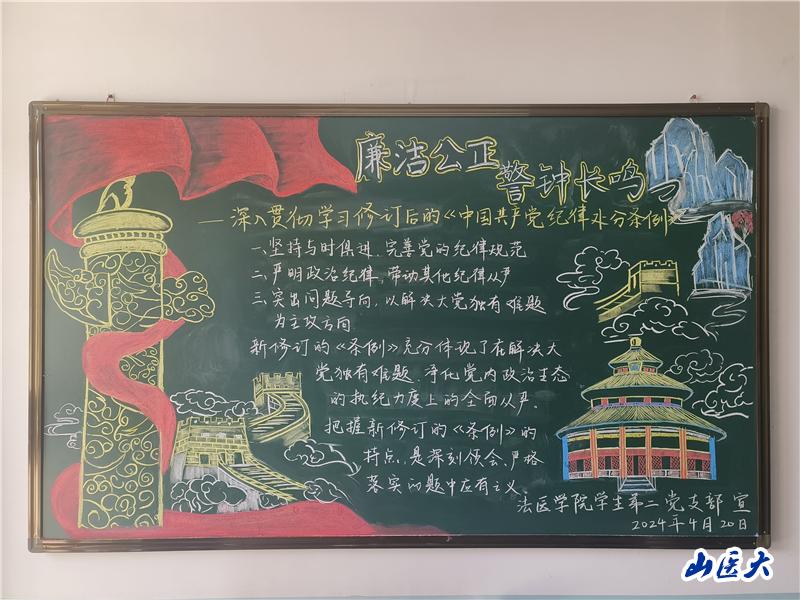 廉洁公正
警钟长鸣
——深入贯彻学习修订后的《中国共产党纪律处分条例》
一、坚持与时俱进，完善党的纪律规范
二、严明政治纪律，带动其他纪律从严
三、突出问题导向，以解决大党独有难题
为主攻方向
新修订的《条例》充分体现了在解决大
党独有难题，净化党内政治生态
的执纪力度上的全面从严.
把握新修订的《条例》的
特点，是深刻领会、严格
落实问题中应有之义
法医学院学生第二党支部 宣
2024年4月20日
山医大